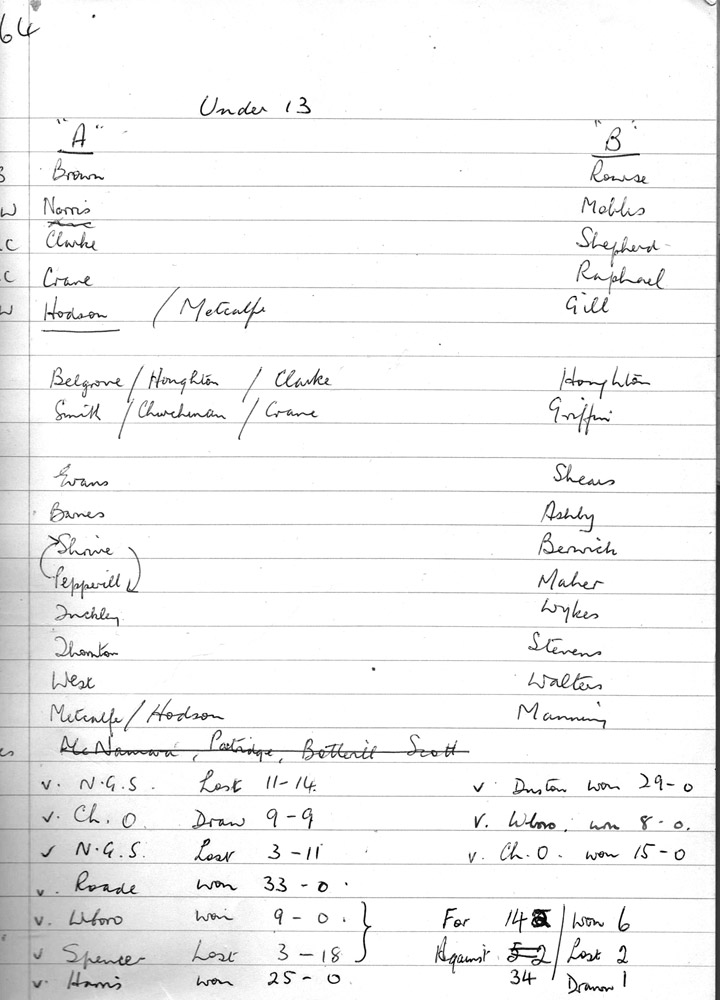 64
Under 13
"A" "B"
B Brown Rowse
W Norris Mobbs
C Clarke Shepherd
C Crane Raphael
W Hodson / Metcalfe Gill
Belgrove / Houghton / Clarke Houghton
Smith / Churchman / Crane Griffin
Evans Shears
Banes Ashby
Shrive Berwick
Pepperill Maher
Inchley Wykes
Thornton Stevens
West Walters
Metcalfe / Hodson Manning
es McNamara, Partridge, Botterill Scott
v. N.G.S. Lost 11-14. v Duston won 29-0
v. Ch. O. Draw 9-9 v. Wboro. won 8-0.
v N.G.S. Lost 3-11 v. Ch. O. won 15-0
v. Roade won 33-0.
v. Wboro won 9-0. For 14 Won 6
v Spencer Lost 3-18 Against 52 Lost 2
v. Harris won 25-0. 34 Drawn 1